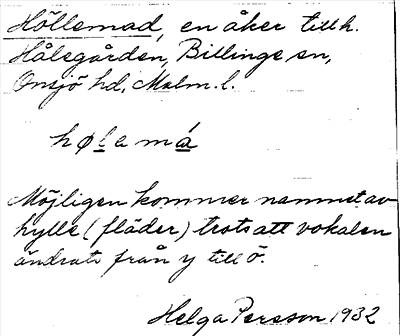 Höllemad, en åker till h.
Hålsgården, Billinge sn,
Onsjö hd, Malm. l.
hølamá
Möjligen kommer namnet av
hylle (fläder) trots att vokalen
ändrats från y till ö.
Helga Persson 1932